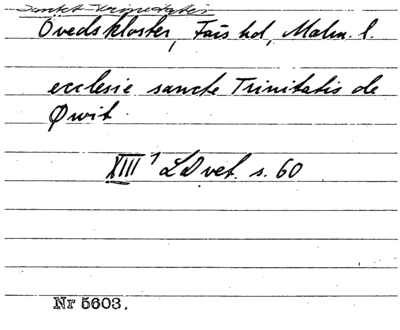 Sankt Trinitatis
Övedskloster, Färs hd, Malm. l.
ecclesie sancte Trinitatis de
Øwit
XIII¹ LD vet. s. 60
Nr 5603.